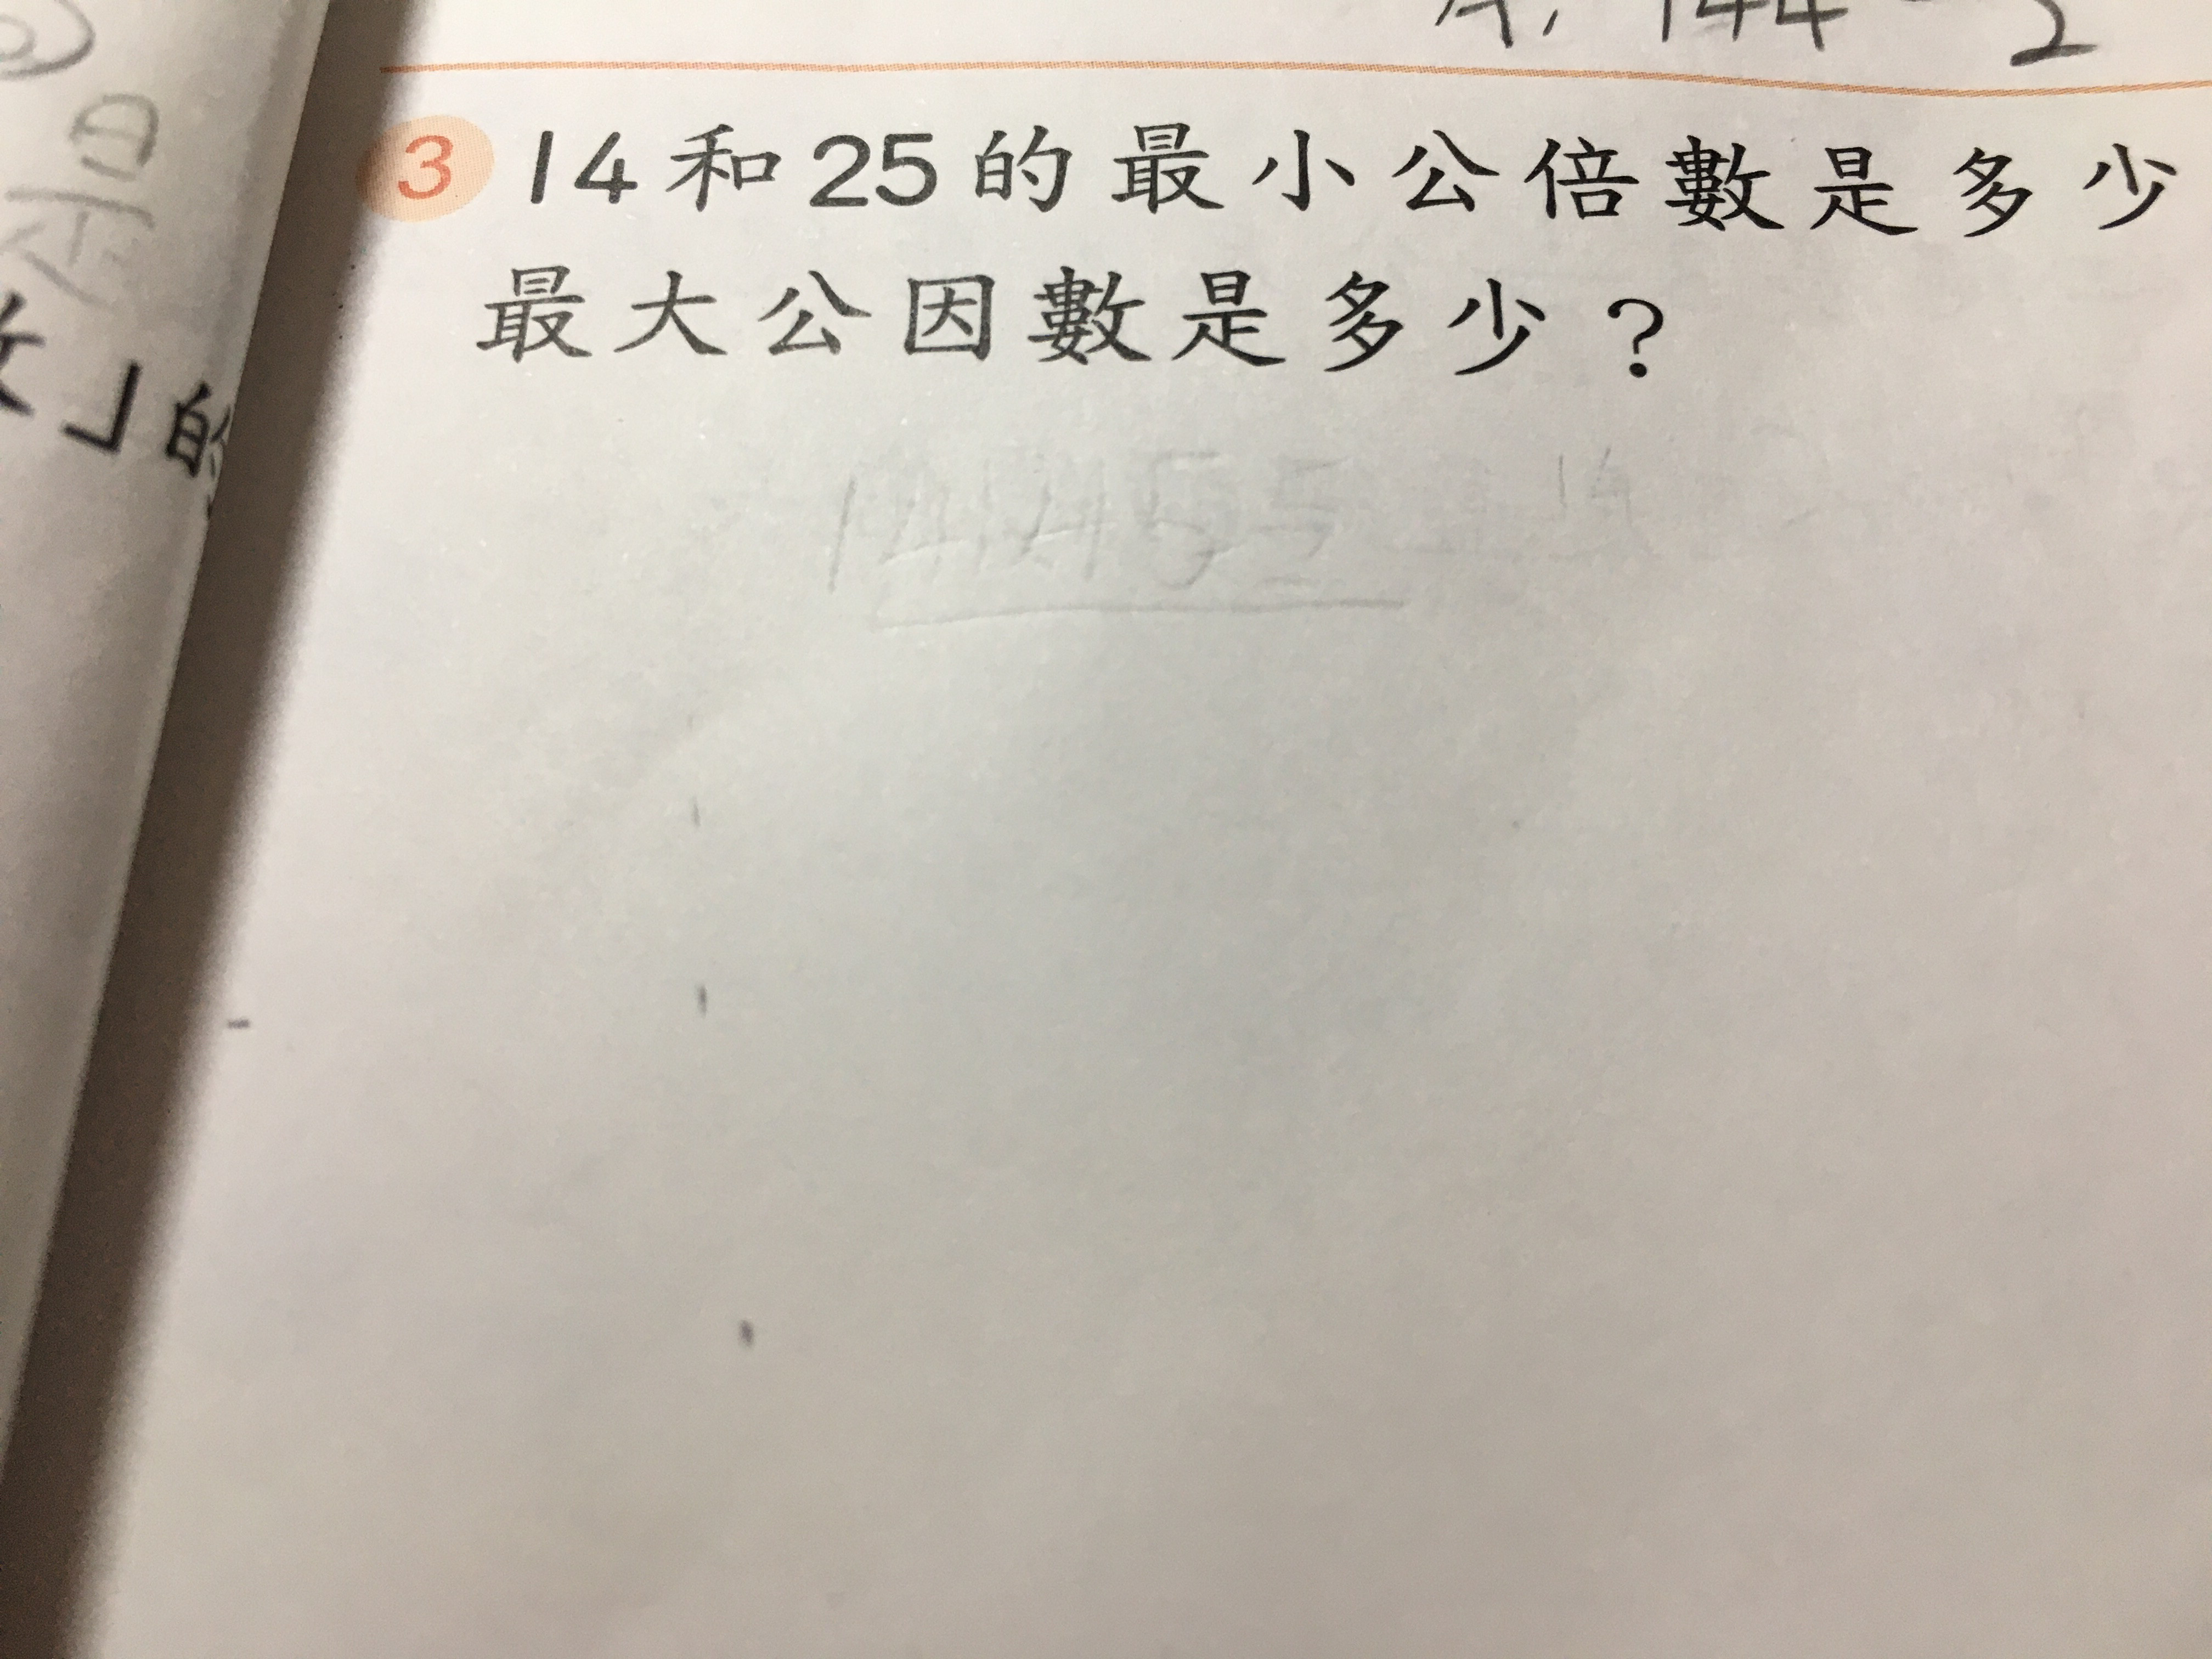 A, 144 2
3 14和25的最小公倍數是多少
最大公因數是多少？
是
數」的